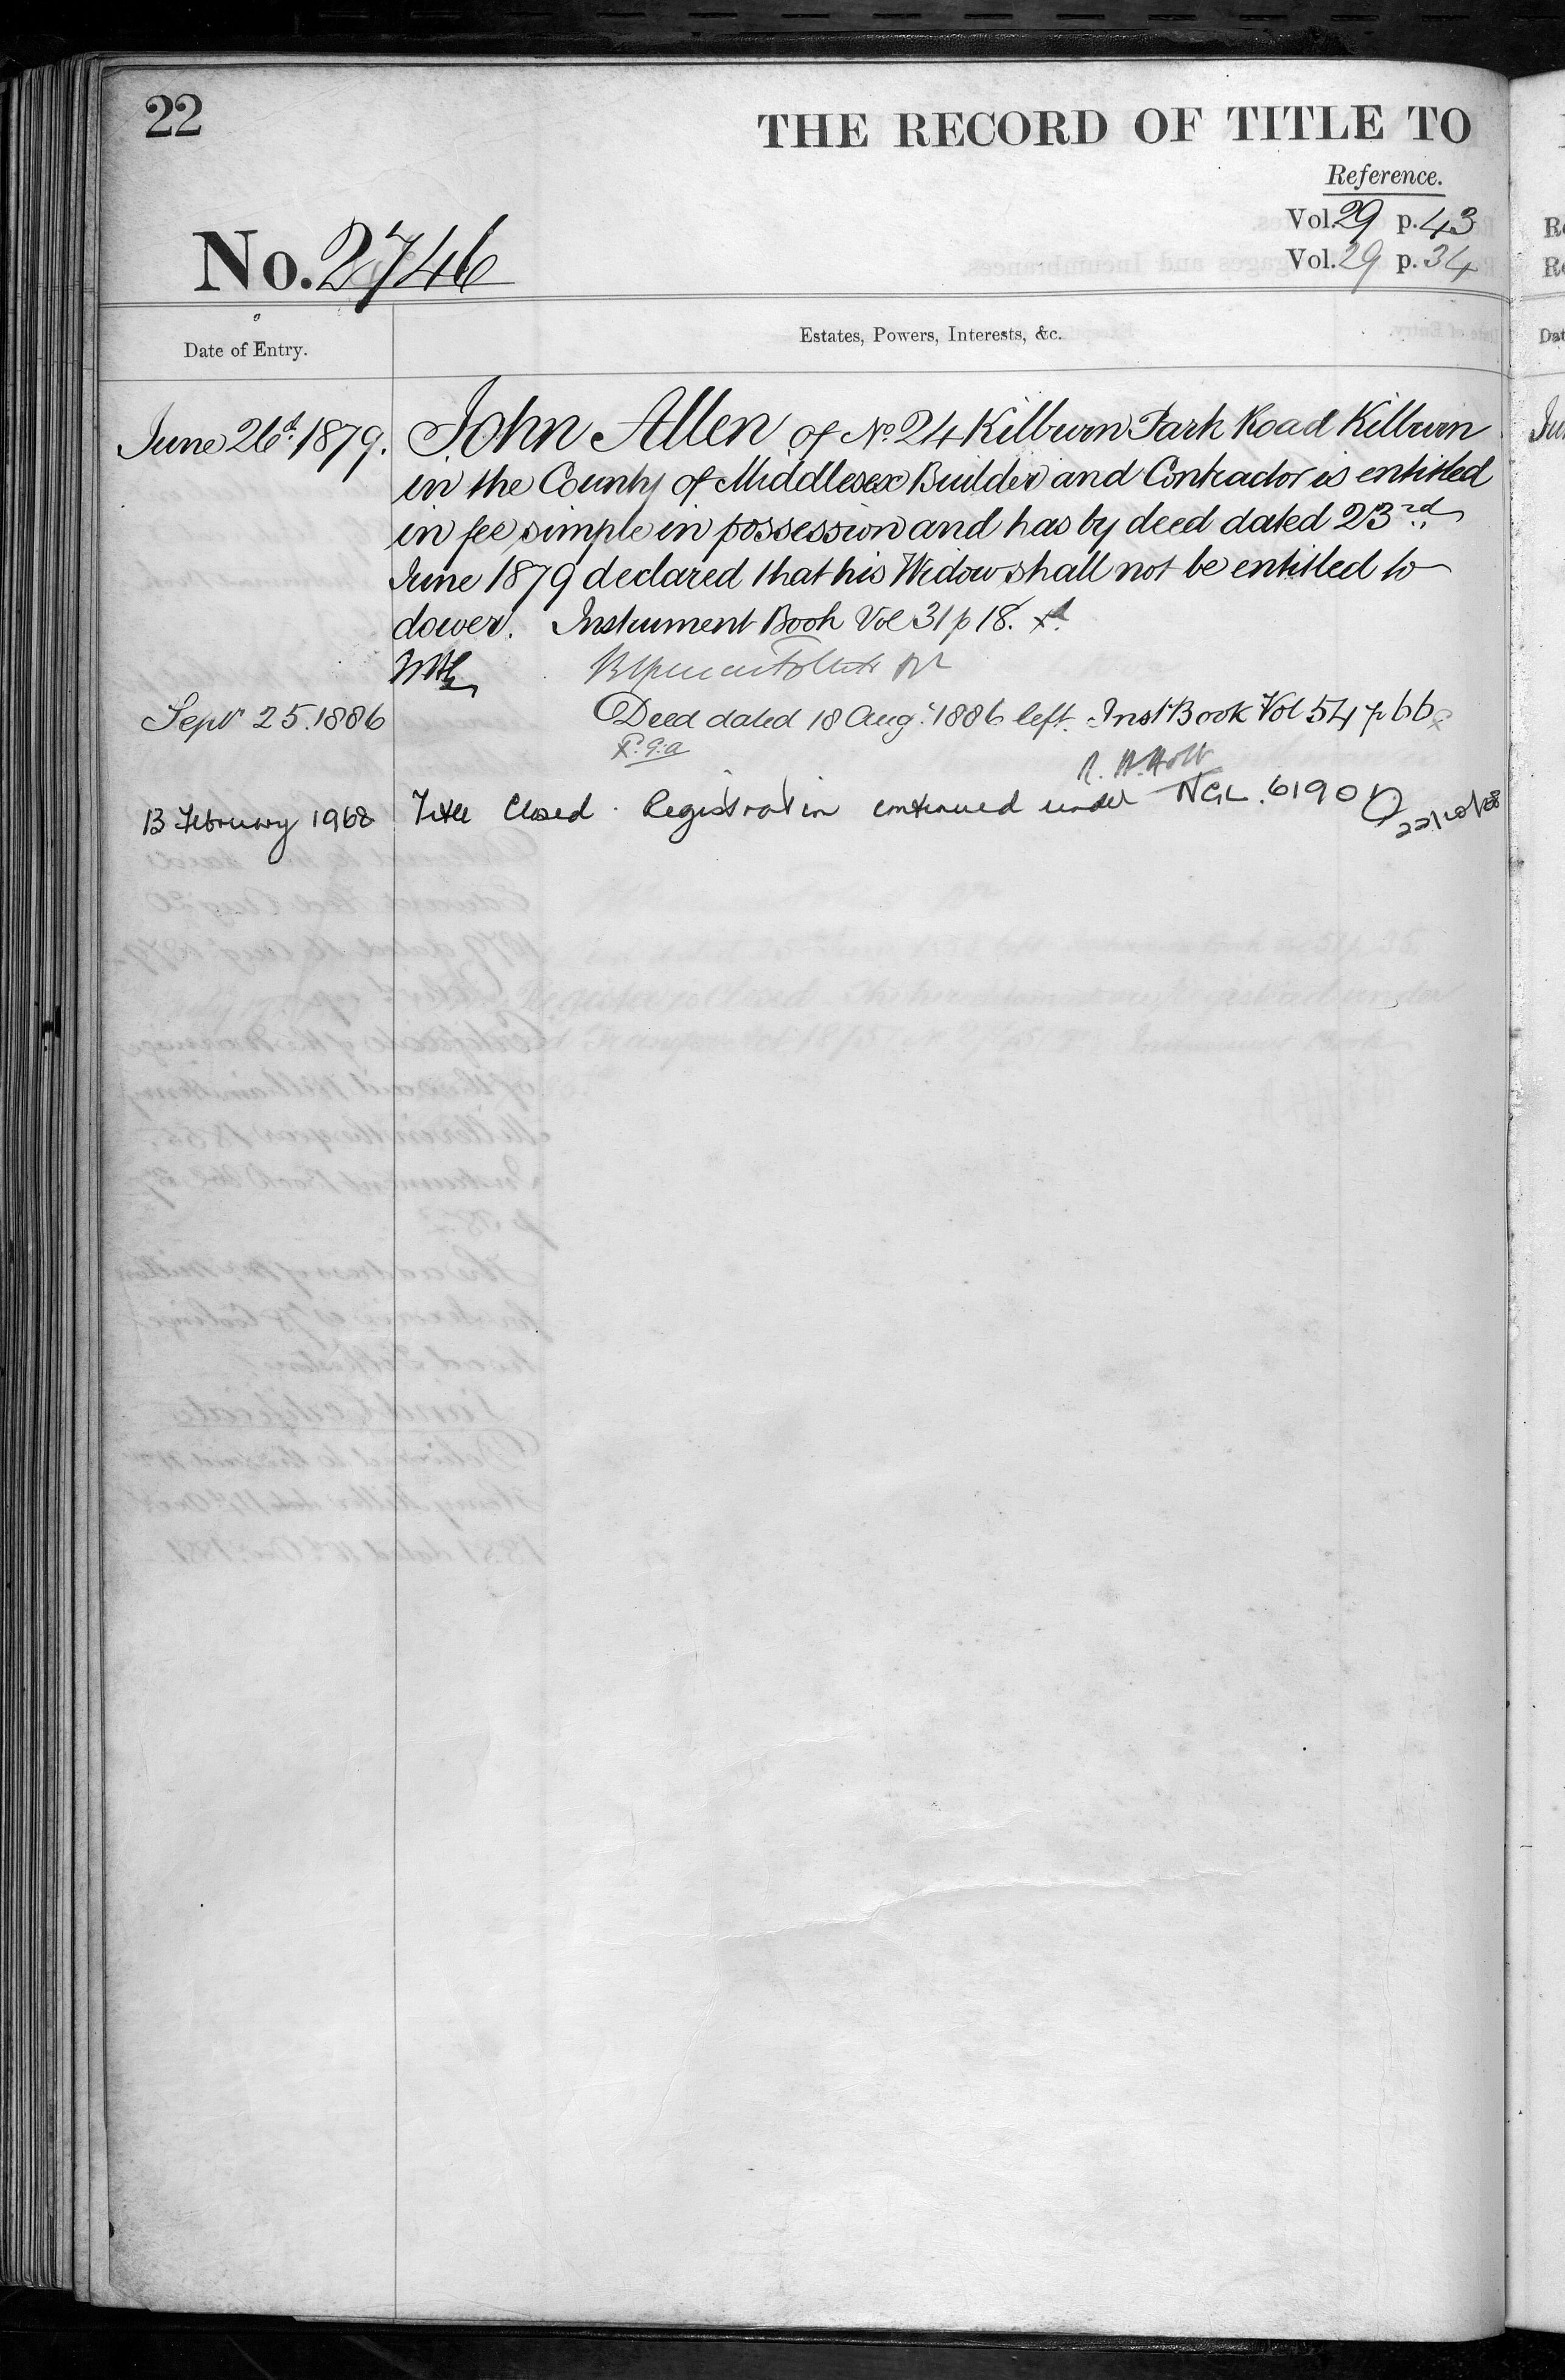 22
THE RECORD OF TITLE TO
Reference.
Vol. 29 p. 43
Vol. 29 p. 34
No. 2746
Date of Entry.
Estates, Powers, Interests, &c.
June 26th 1879. John Allen of No. 24 Kilburn Park Road Kilburn
in the County of Middlesex Builder and Contractor is entitled
in fee simple in possession and has by deed dated 23rd
June 1879 declared that his Widow shall not be entitled to
dower. Instrument Book Vol 31 p 18.
Sepr 25. 1886 Deed dated 18 Aug: 1886 left. Inst Book Vol 54 p 66
R. H. Holt
13 February 1968 Title Closed. Registration continued under NGL. 6190